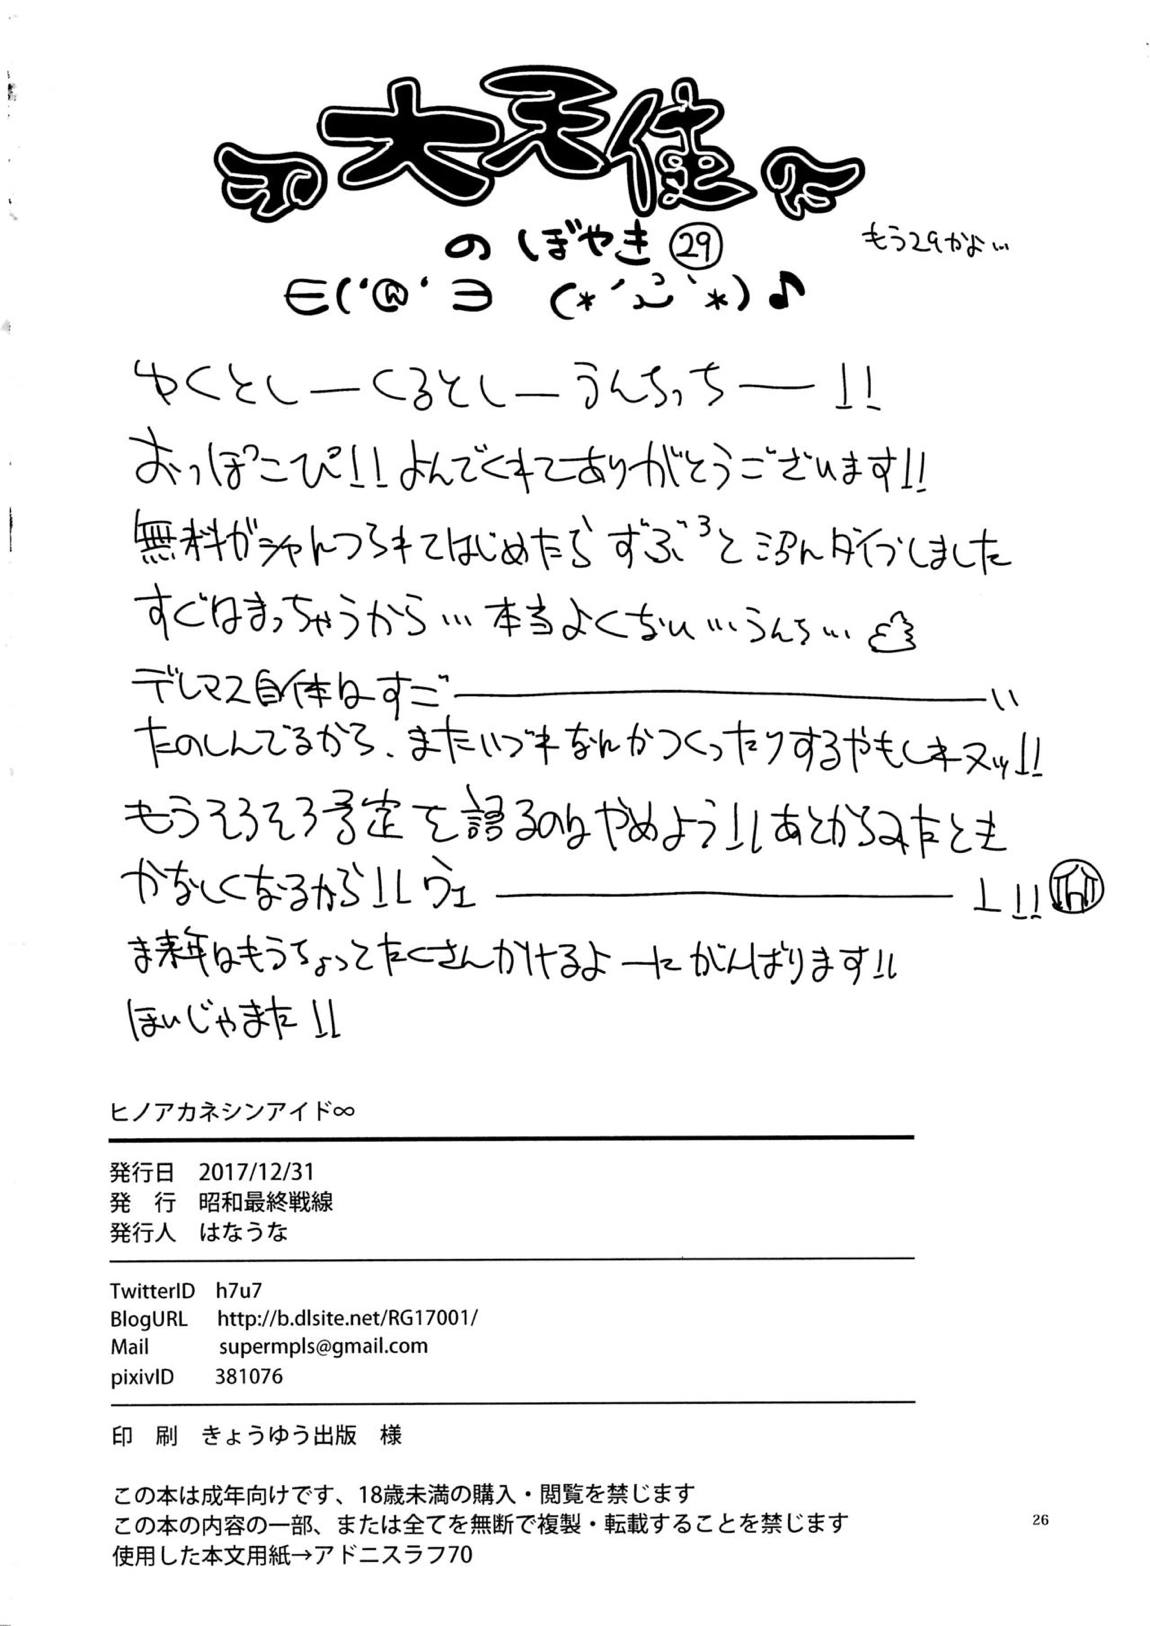 大天使
のぼやき㉙
もう29かよ…
ゆくとしーくるとしーうんちっちー!!
おっぽこぴ!!よんでくれてありがとうございます!!
無料ガシャんつられてはじめたらずぶ³と沼んダイブしました
すぐはまっちゃうから…本当よくない…うんち…
デレマス自体はすご――い
たのしんでるから、またいづれなんかつくったりするやもしれヌッ!!
もうそろそろ予定を語るのはやめよう!!あとからみたとき
かなしくなるから!!ヴェ――
ま来年はもうちょってたくさんかけるよーにがんばります!!
ほいじゃまた!!
ヒノアカネシンアイド∞
発行日 2017/12/31
発 行 昭和最終戦線
発行人 はなうな
TwitterID h7u7
BlogURL http://b.dlsite.net/RG17001/
Mail supermpls@gmail.com
pixivID 381076
印 刷 きょうゆう出版 様
この本は成年向けです、18歳未満の購入・閲覧を禁じます
この本の内容の一部、または全てを無断で複製・転載することを禁じます
使用した本文用紙→アドニスラフ70
26